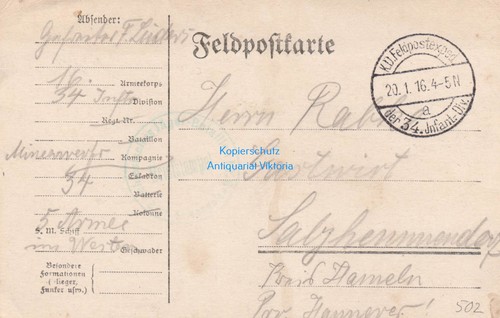 Absender:
Gefreiter F. Lüders
16. Armeekorps
34 Inftr Division
Regt. Nr.
Bataillon
Minenwerfer Kompagnie
Eskadron
34 Batterie
Kolonne
5 Armee
S. M. Schiff
im Westen Geschwader
Besondere
Formationen
(Flieger,
Funker usw.)
Feldpostkarte
K.D. Feldpostexped.
20.1.16. 4-5 N
a
der 34. Infant.-Div.
Herrn
Gastwirt
Salzhemmendorf
Kreis Hameln
Prov. Hannover!
502
Kopierschutz
Antiquariat Viktoria